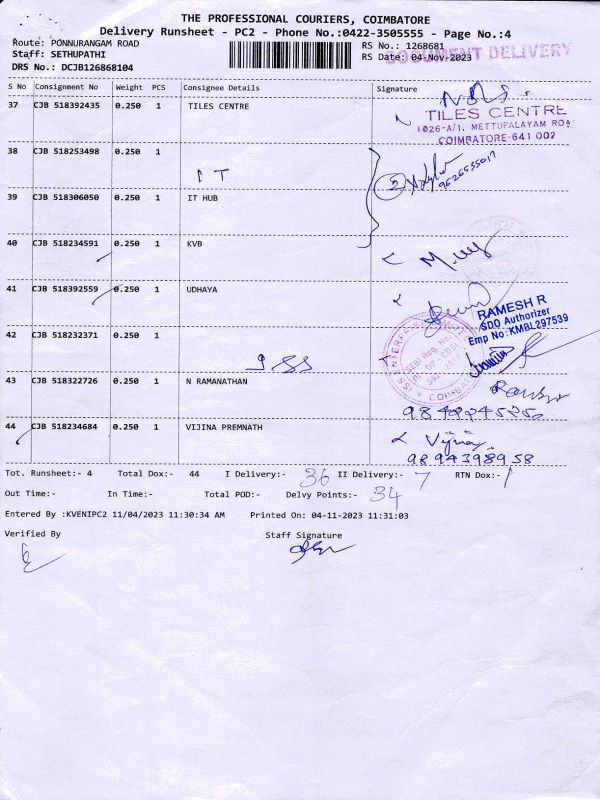 THE PROFESSIONAL COURIERS, COIMBATORE
Delivery Runsheet - PC2 - Phone No.:0422-3505555 - Page No.:4
Route: PONNURANGAM ROAD
RS No.: 1268681
DOCUMENT DELIVERY
Staff: SETHUPATHI
RS Date: 04-Nov-2023
DRS No.: DCJB126868104
S No Consignment No Weight PCS Consignee Details Signature
37 CJB 518392435 0.250 1 TILES CENTRE
TILES CENTRE
1026-A/1, METTUPALAYAM ROAD
COIMBATORE-641 002
38 CJB 518253498 0.250 1
IT
2
39 CJB 518306050 0.250 1 IT HUB
40 CJB 518234591 0.250 1 KVB
41 CJB 518392559 0.250 1 UDHAYA
RAMESH R
SDO Authorizer
Emp No:KMBL297539
42 CJB 518232371 0.250 1
ISS
43 CJB 518322726 0.250 1 N RAMANATHAN
44 CJB 518234684 0.250 1 VIJINA PREMNATH
9894398958
Tot. Runsheet:- 4 Total Dox:- 44 I Delivery:- 36 II Delivery:- 7 RTN Dox:- 1
Out Time:- In Time:- Total POD:- Delvy Points:- 34
Entered By :KVENIPC2 11/04/2023 11:30:34 AM Printed On: 04-11-2023 11:31:03
Verified By Staff Signature